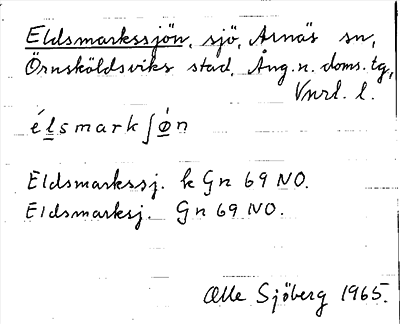 Eldsmarkssjön, sjö, Arnäs sn,
Örnsköldsviks stad, Ång. n. doms. tg,
Vnrl. l.
élsmarkʃøn
Eldsmarkssj. k Gn 69 NO.
Eldsmarksj. Gn 69 NO.
Olle Sjöberg 1965.